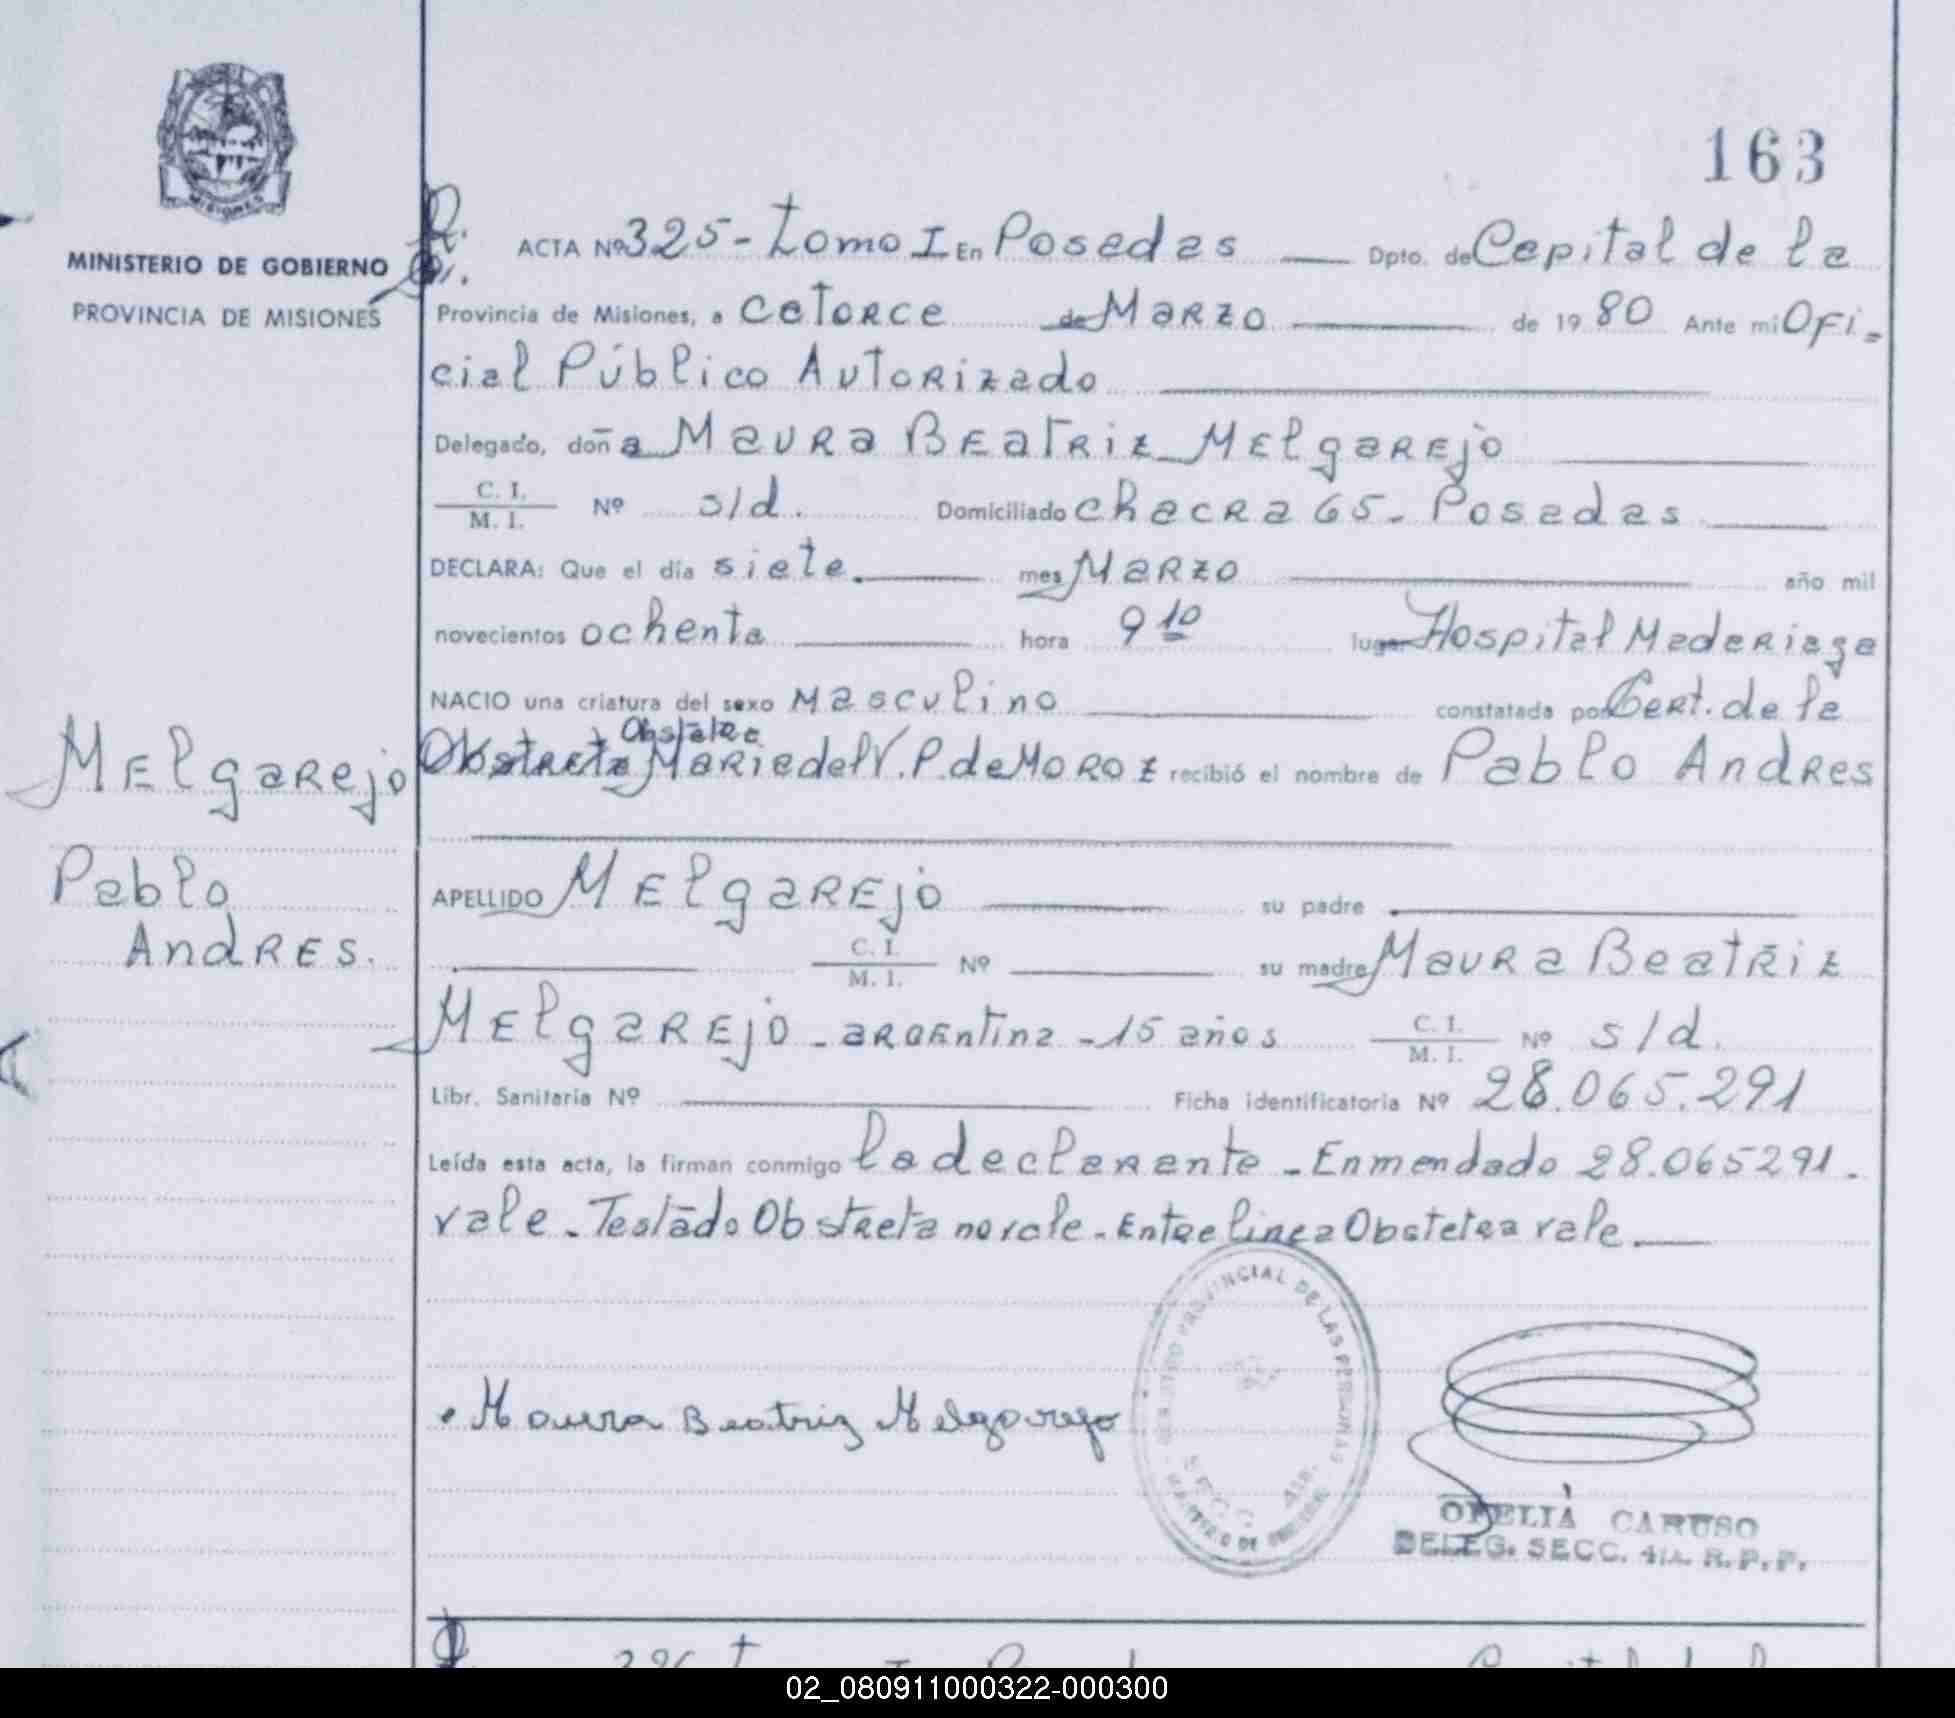 163
MISIONES
MINISTERIO DE GOBIERNO
PROVINCIA DE MISIONES
ACTA Nº 325 - Tomo I En Posadas Dpto. de Capital de la
Provincia de Misiones, a catorce de Marzo de 19 80 Ante mi Ofi-
cial Público Autorizado
Delegado, doña Maura Beatriz Melgarejo
C. I.
M. I. Nº s/d. Domiciliado chacra 65 - Posadas
DECLARA: Que el día siete mes Marzo año mil
novecientos ochenta hora 9 10 lugar Hospital Madariaga
NACIO una criatura del sexo Masculino constatada por Cert. de la
Obstetra
Obstreta Maria del V. P. de Moroz recibió el nombre de Pablo Andres
Melgarejo
Pablo
Andres.
APELLIDO Melgarejo su padre
C. I.
M. I. Nº su madre Maura Beatriz
Melgarejo - argentina - 15 años C. I.
M. I. Nº s/d.
Libr. Sanitaria Nº Ficha identificatoria Nº 28.065.291
Leída esta acta, la firman conmigo la declarante - Enmendado 28.065291 -
vale - Testado Obstreta no vale - Entrelinea Obstetra vale.
Maura Beatriz Melgarejo
PROVINCIAL DE LAS PERSONAS
SECC 4ta.
OFELIA CARUSO
DELEG. SECC. 4ta. R. P. P.
02_080911000322-000300